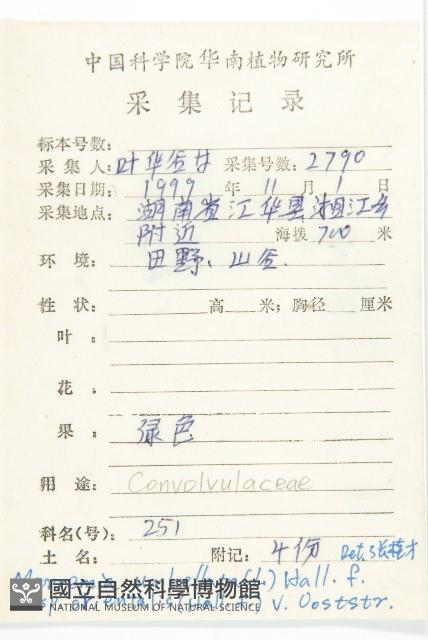 中国科学院华南植物研究所
采集记录
标本号数:
采集人: 叶华谷 采集号数: 2790
采集日期: 1999 年 11 月 1 日
采集地点: 湖南省江华县湘江乡
附近 海拨 700 米
环境: 田野、山谷.
性状: 高 米; 胸径 厘米
叶:
花:
果: 绿色
用途: Convolvulaceae
科名(号): 251
土名: 附记: 4份 Det. 张
(L.) Hall. f.
orientalis (Hall. f.) v. Ooststr.
國立自然科學博物館
NATIONAL MUSEUM OF NATURAL SCIENCE